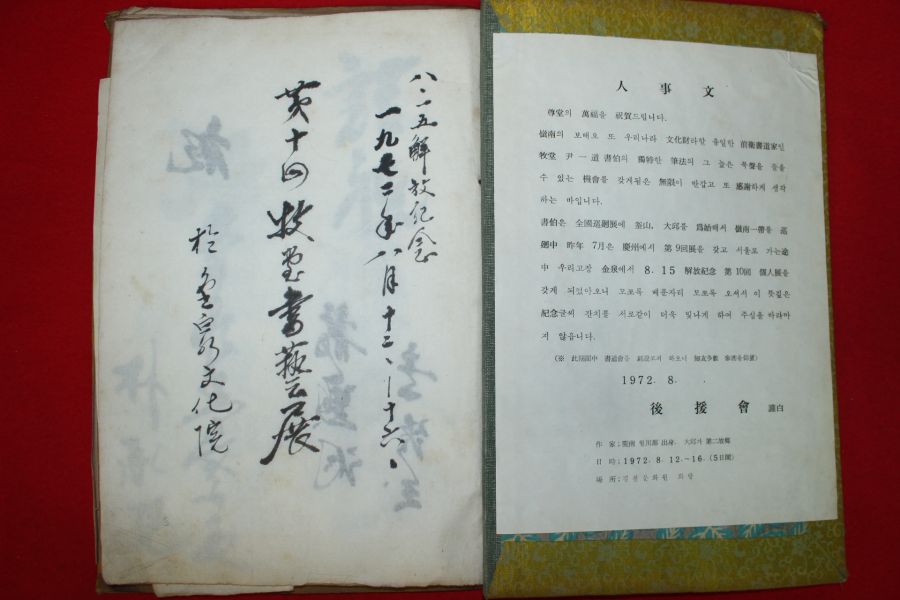 八·一五解放紀念
一九七二年八月十二、─十六、
第十回 牧堂書藝展
於金泉文化院
人事文
尊堂의 萬福을 祝賀드립니다.
嶺南의 보배요 또 우리나라 文化財라할 유일한 前衛書道家인
牧堂 尹一道 書伯의 獨特한 筆法의 그 높은 묵聲을 들을
수 있는 機會를 갖게됨은 無限이 반갑고 또 感謝하게 생각
하는 바입니다.
書伯은 全國巡廻展에 釜山, 大邱를 爲始해서 嶺南一帶을 巡
廻中 昨年 7月은 慶州에서 第9回展을 갖고 서울로 가는途
中 우리고장 金泉에서 8.15 解放紀念 第10回 個人展을
갖게 되었아오니 모쪼록 배푼자리 모쪼록 오셔서 이 뜻깊은
紀念글씨 잔치를 서로같이 더욱 빛나게 하여 주심을 바라마
지 않읍니다.
(※ 此期間中 書道會를
1972. 8.
後援會 謹白
作家; 出身, 大邱가 第二故鄕
日時; 1972. 8. 12~16. (5日間)
場所; 김천문화원 화랑